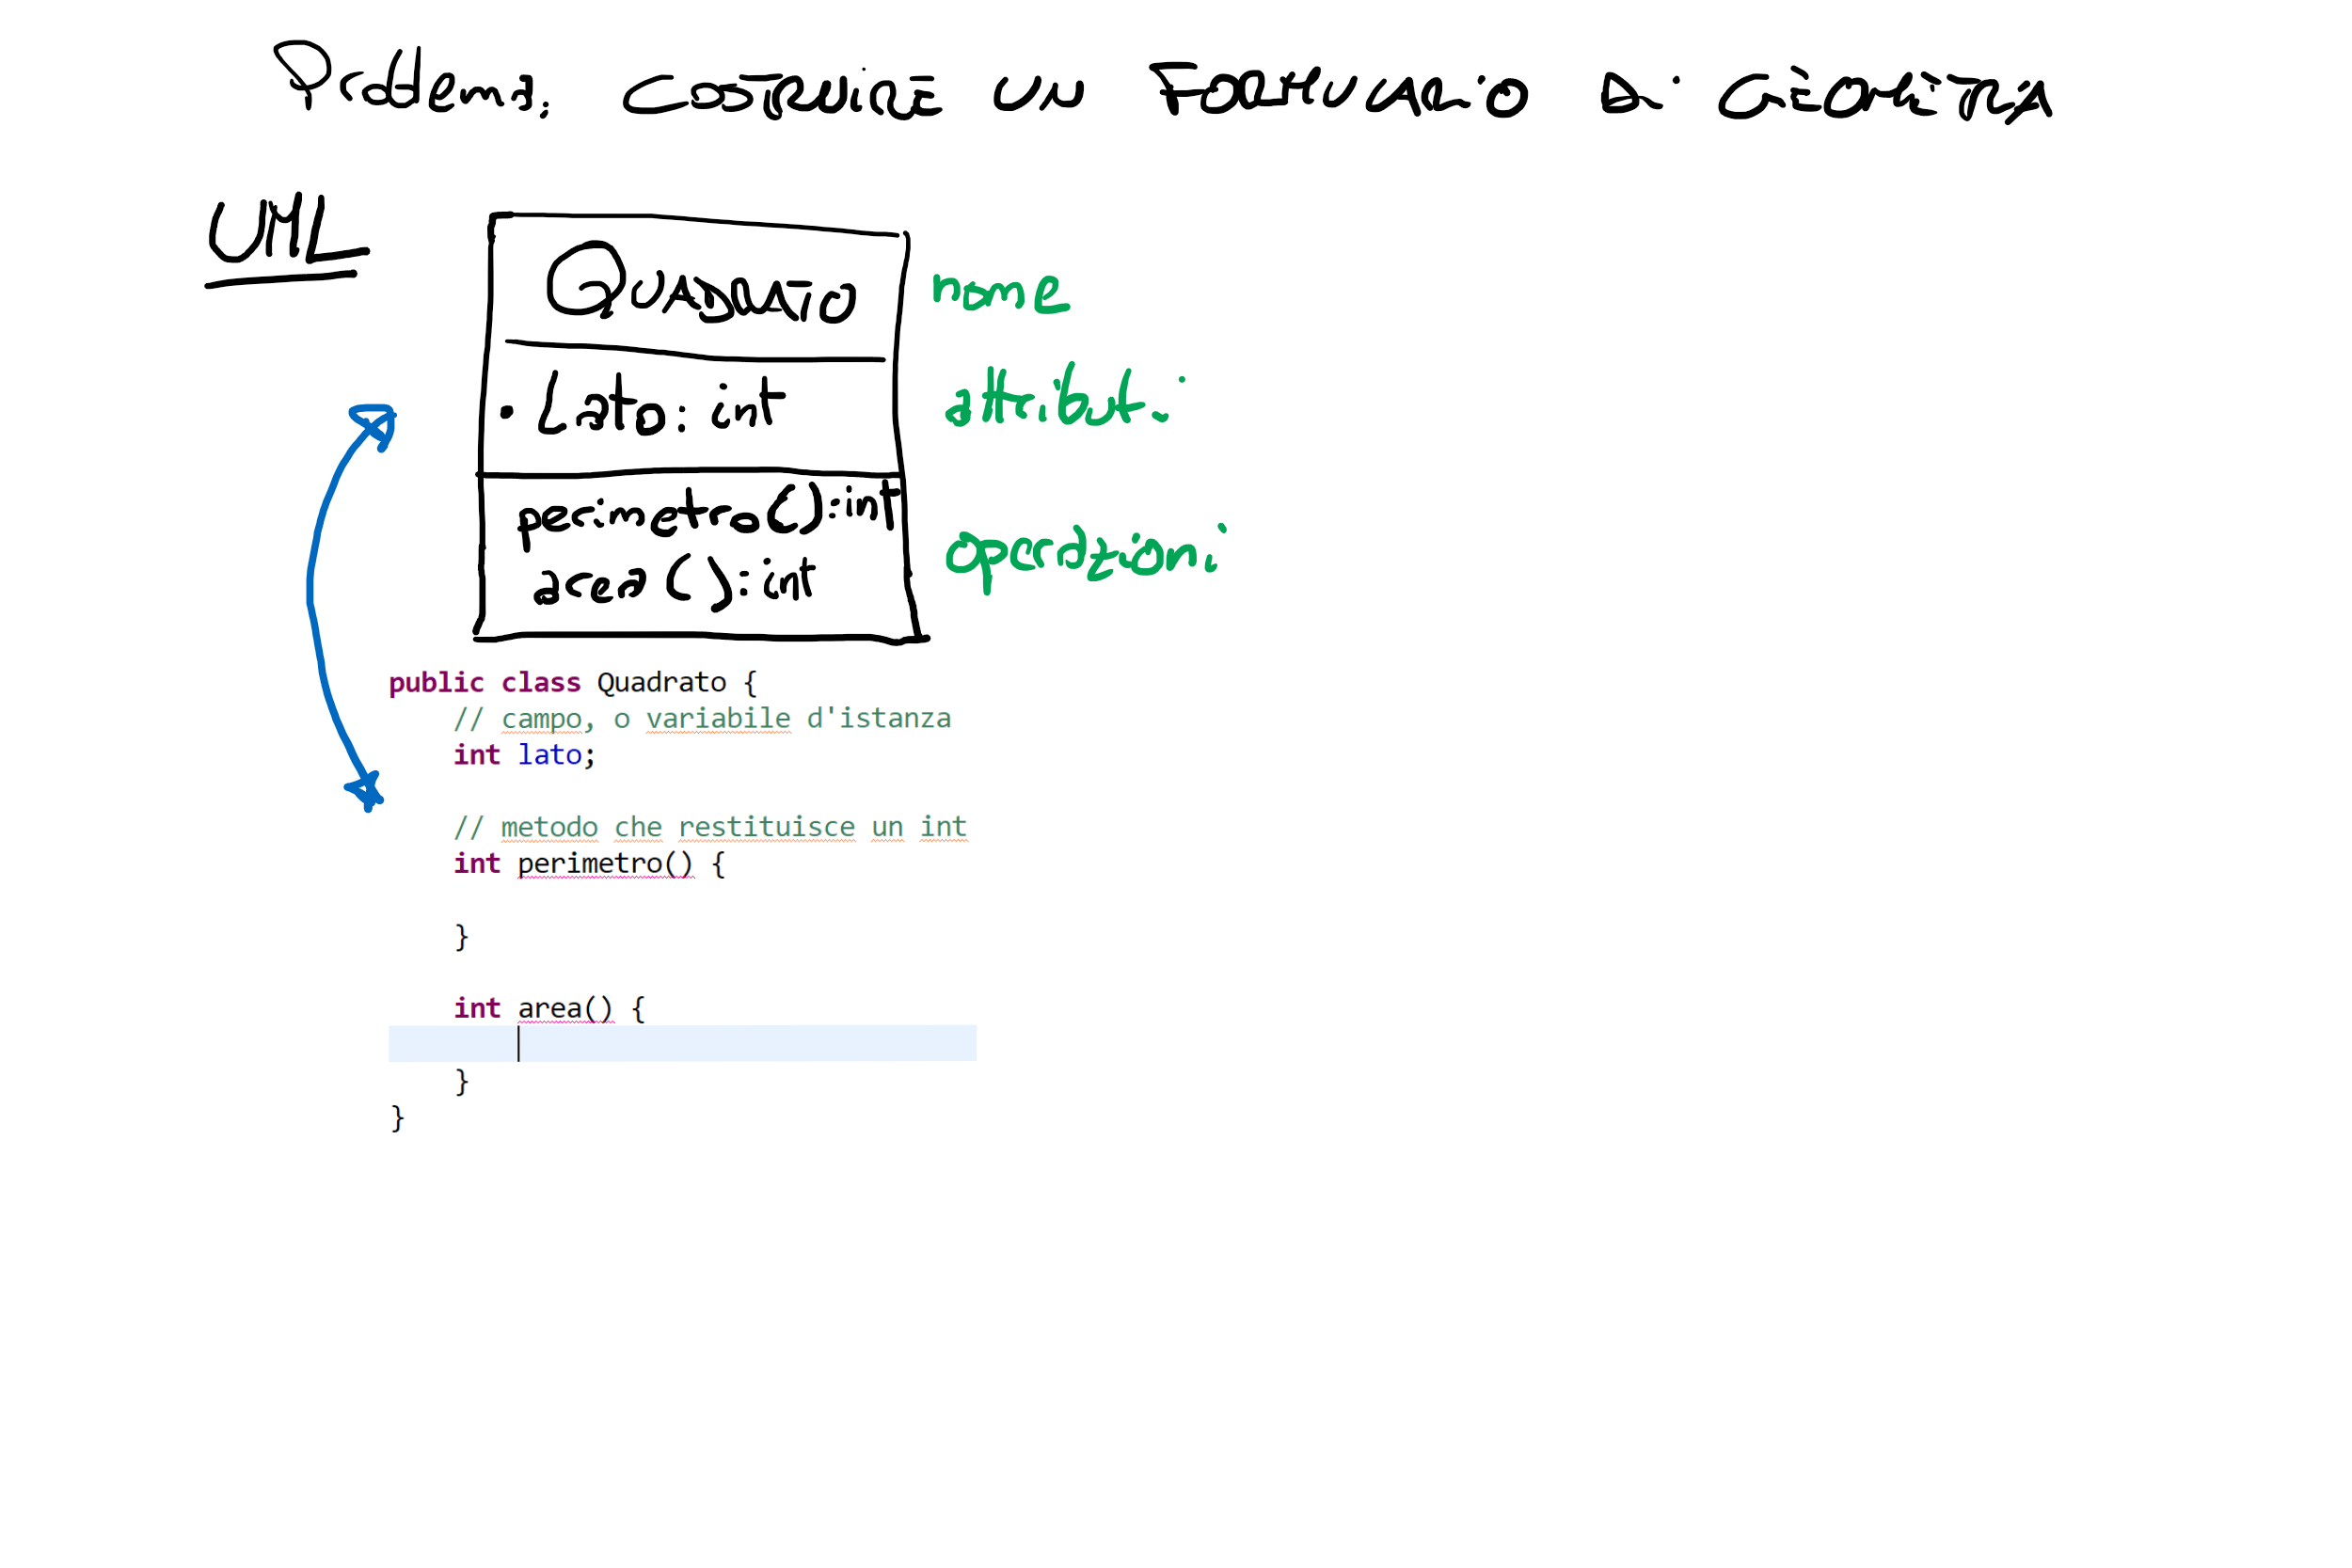 Problema: COSTRUIRE UN FORMULARIO DI GEOMETRIA
UML
QUADRATO
nome
• Lato: int
attributi
perimetro():int
area():int
operazioni
public class Quadrato {
// campo, o variabile d'istanza
int lato;
// metodo che restituisce un int
int perimetro() {
}
int area() {
}
}